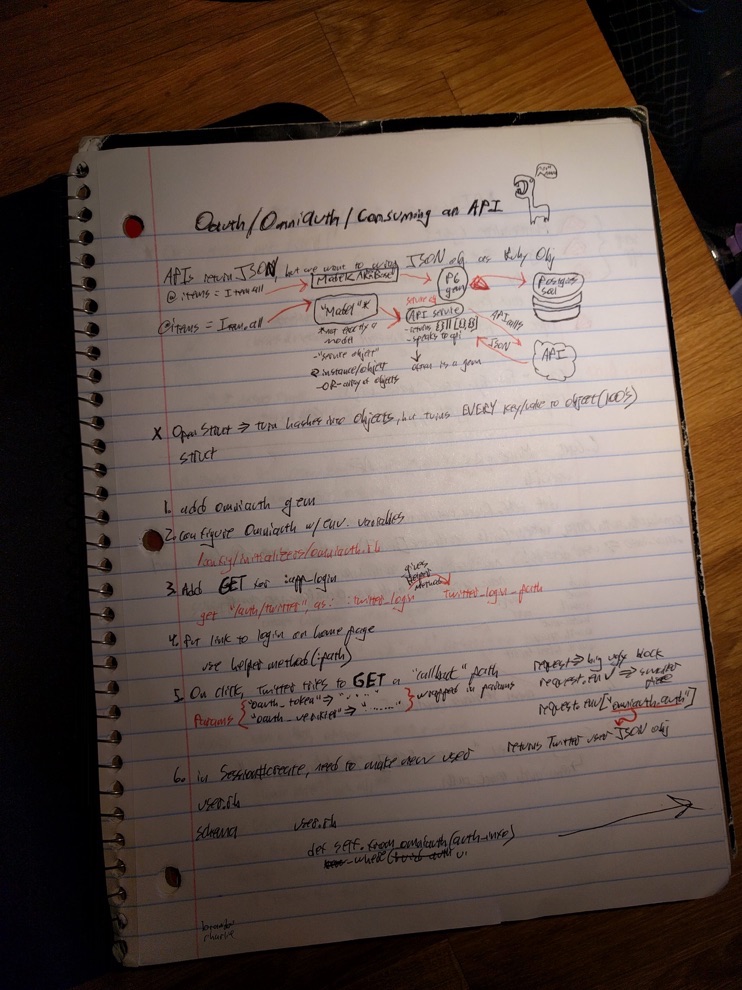 Oauth/Omniauth/Consuming an API
APIs return JSON, but we want to using JSON obj as Ruby Obj
@items = Item.all
Model < AR::Base
PG gem
Postgres sql
@items = Item.all
"Model"*
*not exactly a model
-"service object"
@ instance/object
-OR- array of objects
service
API service
-returns [{}] [{},{}]
-speaks to api
↓
is a gem
API calls
JSON
API
X OpenStruct ⇒ turn hashes into objects, but turns EVERY key/value to object (100's)
struct
1. add omniauth gem
2. configure Omniauth w/ env. variables
/config/initializers/omniauth.rb
3. Add GET for :app_login
get "/auth/twitter", as: :twitter_login
gives helper method
twitter_login_path
4. Put link to login on home page
use helper method (:path)
5. On click, Twitter tries to GET a "callback" path
Params { "oauth_token" ⇒ "....."
"oauth_verifier" ⇒ "......" } wrapped in params
request ⇒ big ugly block
request.env ⇒ smaller piece
request.env["omniauth.auth"]
returns Twitter user JSON obj
6. in Session#create, need to make new user
user.rb
schema
user.rb
def self.from_omniauth(auth_info)
where(